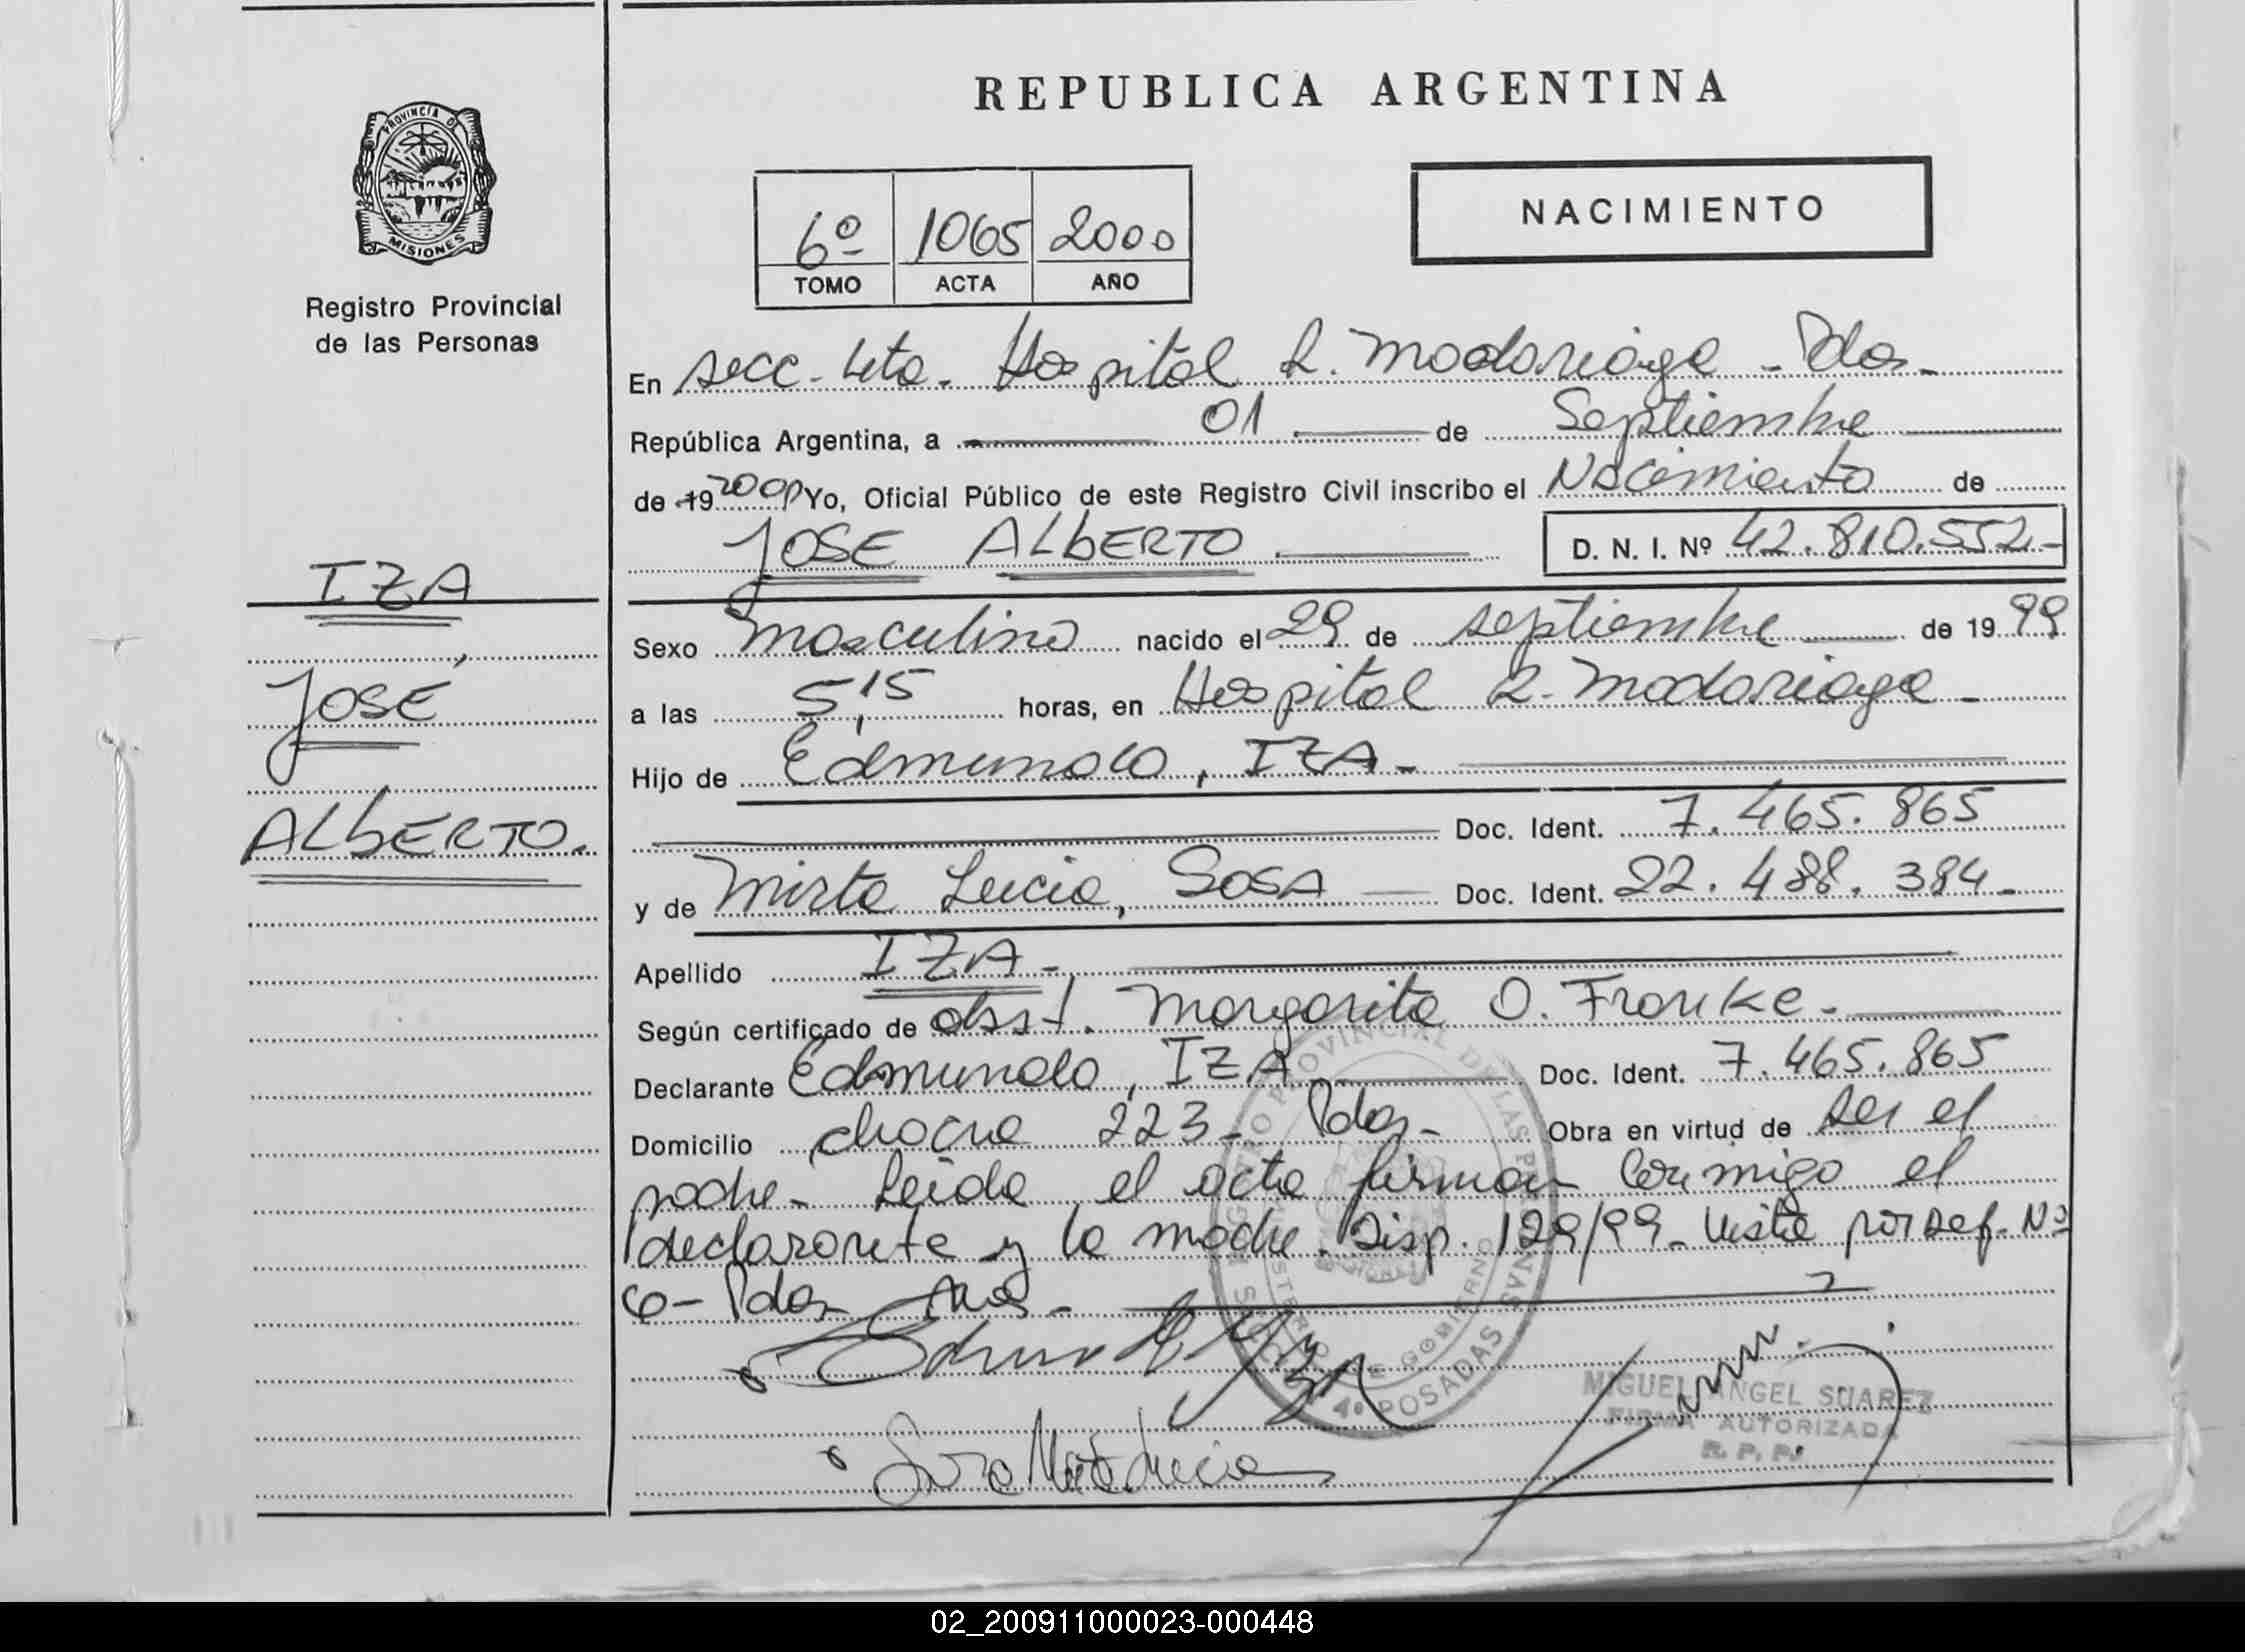 PROVINCIA DE
MISIONES
Registro Provincial
de las Personas
IZA
,
JOSÉ
ALBERTO.
REPUBLICA ARGENTINA
6º 1065 2000
TOMO ACTA AÑO
NACIMIENTO
En secc. 4ta. Hospital R. Madariaga - Pdas -
República Argentina, a 01 de Septiembre
de 19 2000 Yo, Oficial Público de este Registro Civil inscribo el Nacimiento de
JOSE ALBERTO. D. N. I. Nº 42.810.552-
Sexo masculino nacido el 29 de septiembre de 19 99
a las 5,15 horas, en Hospital R. Madariaga -
Hijo de Edmundo, IZA -
Doc. Ident. 7.465.865
y de Mirta Lucia, SOSA Doc. Ident. 22.488.384-
Apellido IZA -
Según certificado de obst. Margarita O. Franke -
Declarante Edmundo, IZA Doc. Ident. 7.465.865
Domicilio chacra 223 - Pdas - Obra en virtud de ser el
padre - Leida el acta firman conmigo el
declarante y la madre. Disp. 129/99 - Vista por Def. Nº
6 - Pdas - Mnes -
REGISTRO PROVINCIAL DE LAS PERSONAS
MINISTERIO DE GOBIERNO
SECC. 4º POSADAS
MIGUEL ANGEL SUAREZ
FIRMA AUTORIZADA
R. P. P.
Sosa Mirta Lucia
02_200911000023-000448